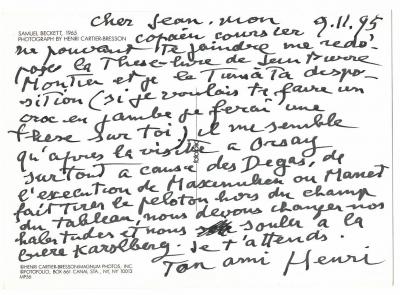 SAMUEL BECKETT, 1965
PHOTOGRAPH BY HENRI CARTIER-BRESSON
Cher Jean. mon 9.11.95
copain coursier
ne pouvant te joindre me redé-
pose la Thèse-livre de Jean Pierre
Montier et je la tiens à ta dispo-
sition (si je voulais te faire un
croc en jambe je ferai une
thèse sur toi), il me semble
qu'après la visite à Orsay
surtout à cause des Degas, de
l'exécution de Maximilien où Manet
fait tirer le peloton hors du champ
du tableau, nous devons changer nos
habitudes et nous souler à la
bière Karolberg. Je t'attends.
Ton ami Henri
©HENRI CARTIER-BRESSON/MAGNUM PHOTOS, INC.
©FOTOFOLIO, BOX 661 CANAL STA., NY, NY 10013
MP56